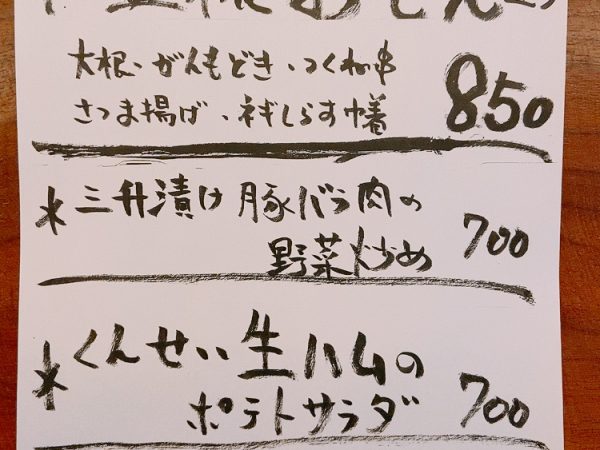 おでん
大根・がんもどき・つくね串
さつま揚げ・ネギしらす巾着 850
*三升漬け 豚バラ肉の
野菜炒め 700
*くんせい生ハムの
ポテトサラダ 700